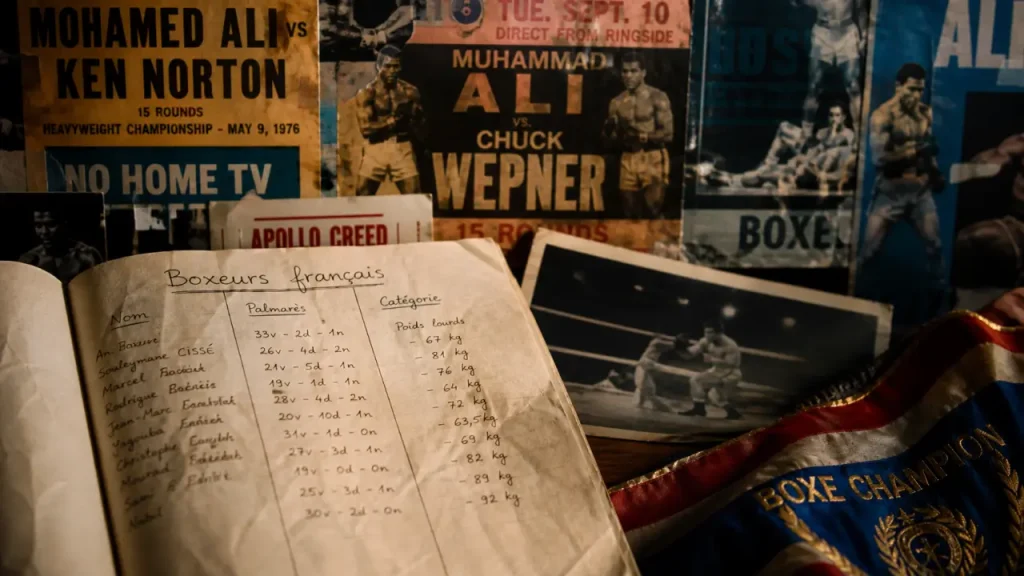 MOHAMED ALI VS
KEN NORTON
15 ROUNDS
HEAVYWEIGHT CHAMPIONSHIP - MAY 9, 1976
NO HOME TV
TUE. SEPT. 10
DIRECT FROM RINGSIDE
MUHAMMAD
ALI
VS.
CHUCK
WEPNER
15 ROUNDS
BOXE
AL
APOLLO CREED
Boxeurs français
Nom
Palmarès
Catégorie
Poids lourds
Souleymane CISSÉ
Marcel
Rodrigue
Jean-Marc
Christophe
Mourad
33v - 2d - 1n
26v - 4d - 2n
21v - 5d - 1n
19v - 1d - 1n
28v - 4d - 2n
20v - 10d - 1n
31v - 1d - 0n
27v - 3d - 1n
19v - 0d - 0n
25v - 3d - 1n
30v - 2d - 0n
- 67 kg
- 81 kg
- 76 kg
- 64 kg
- 72 kg
- 63,5kg
- 69 kg
- 82 kg
- 89 kg
- 92 kg
BOXE CHAMPION